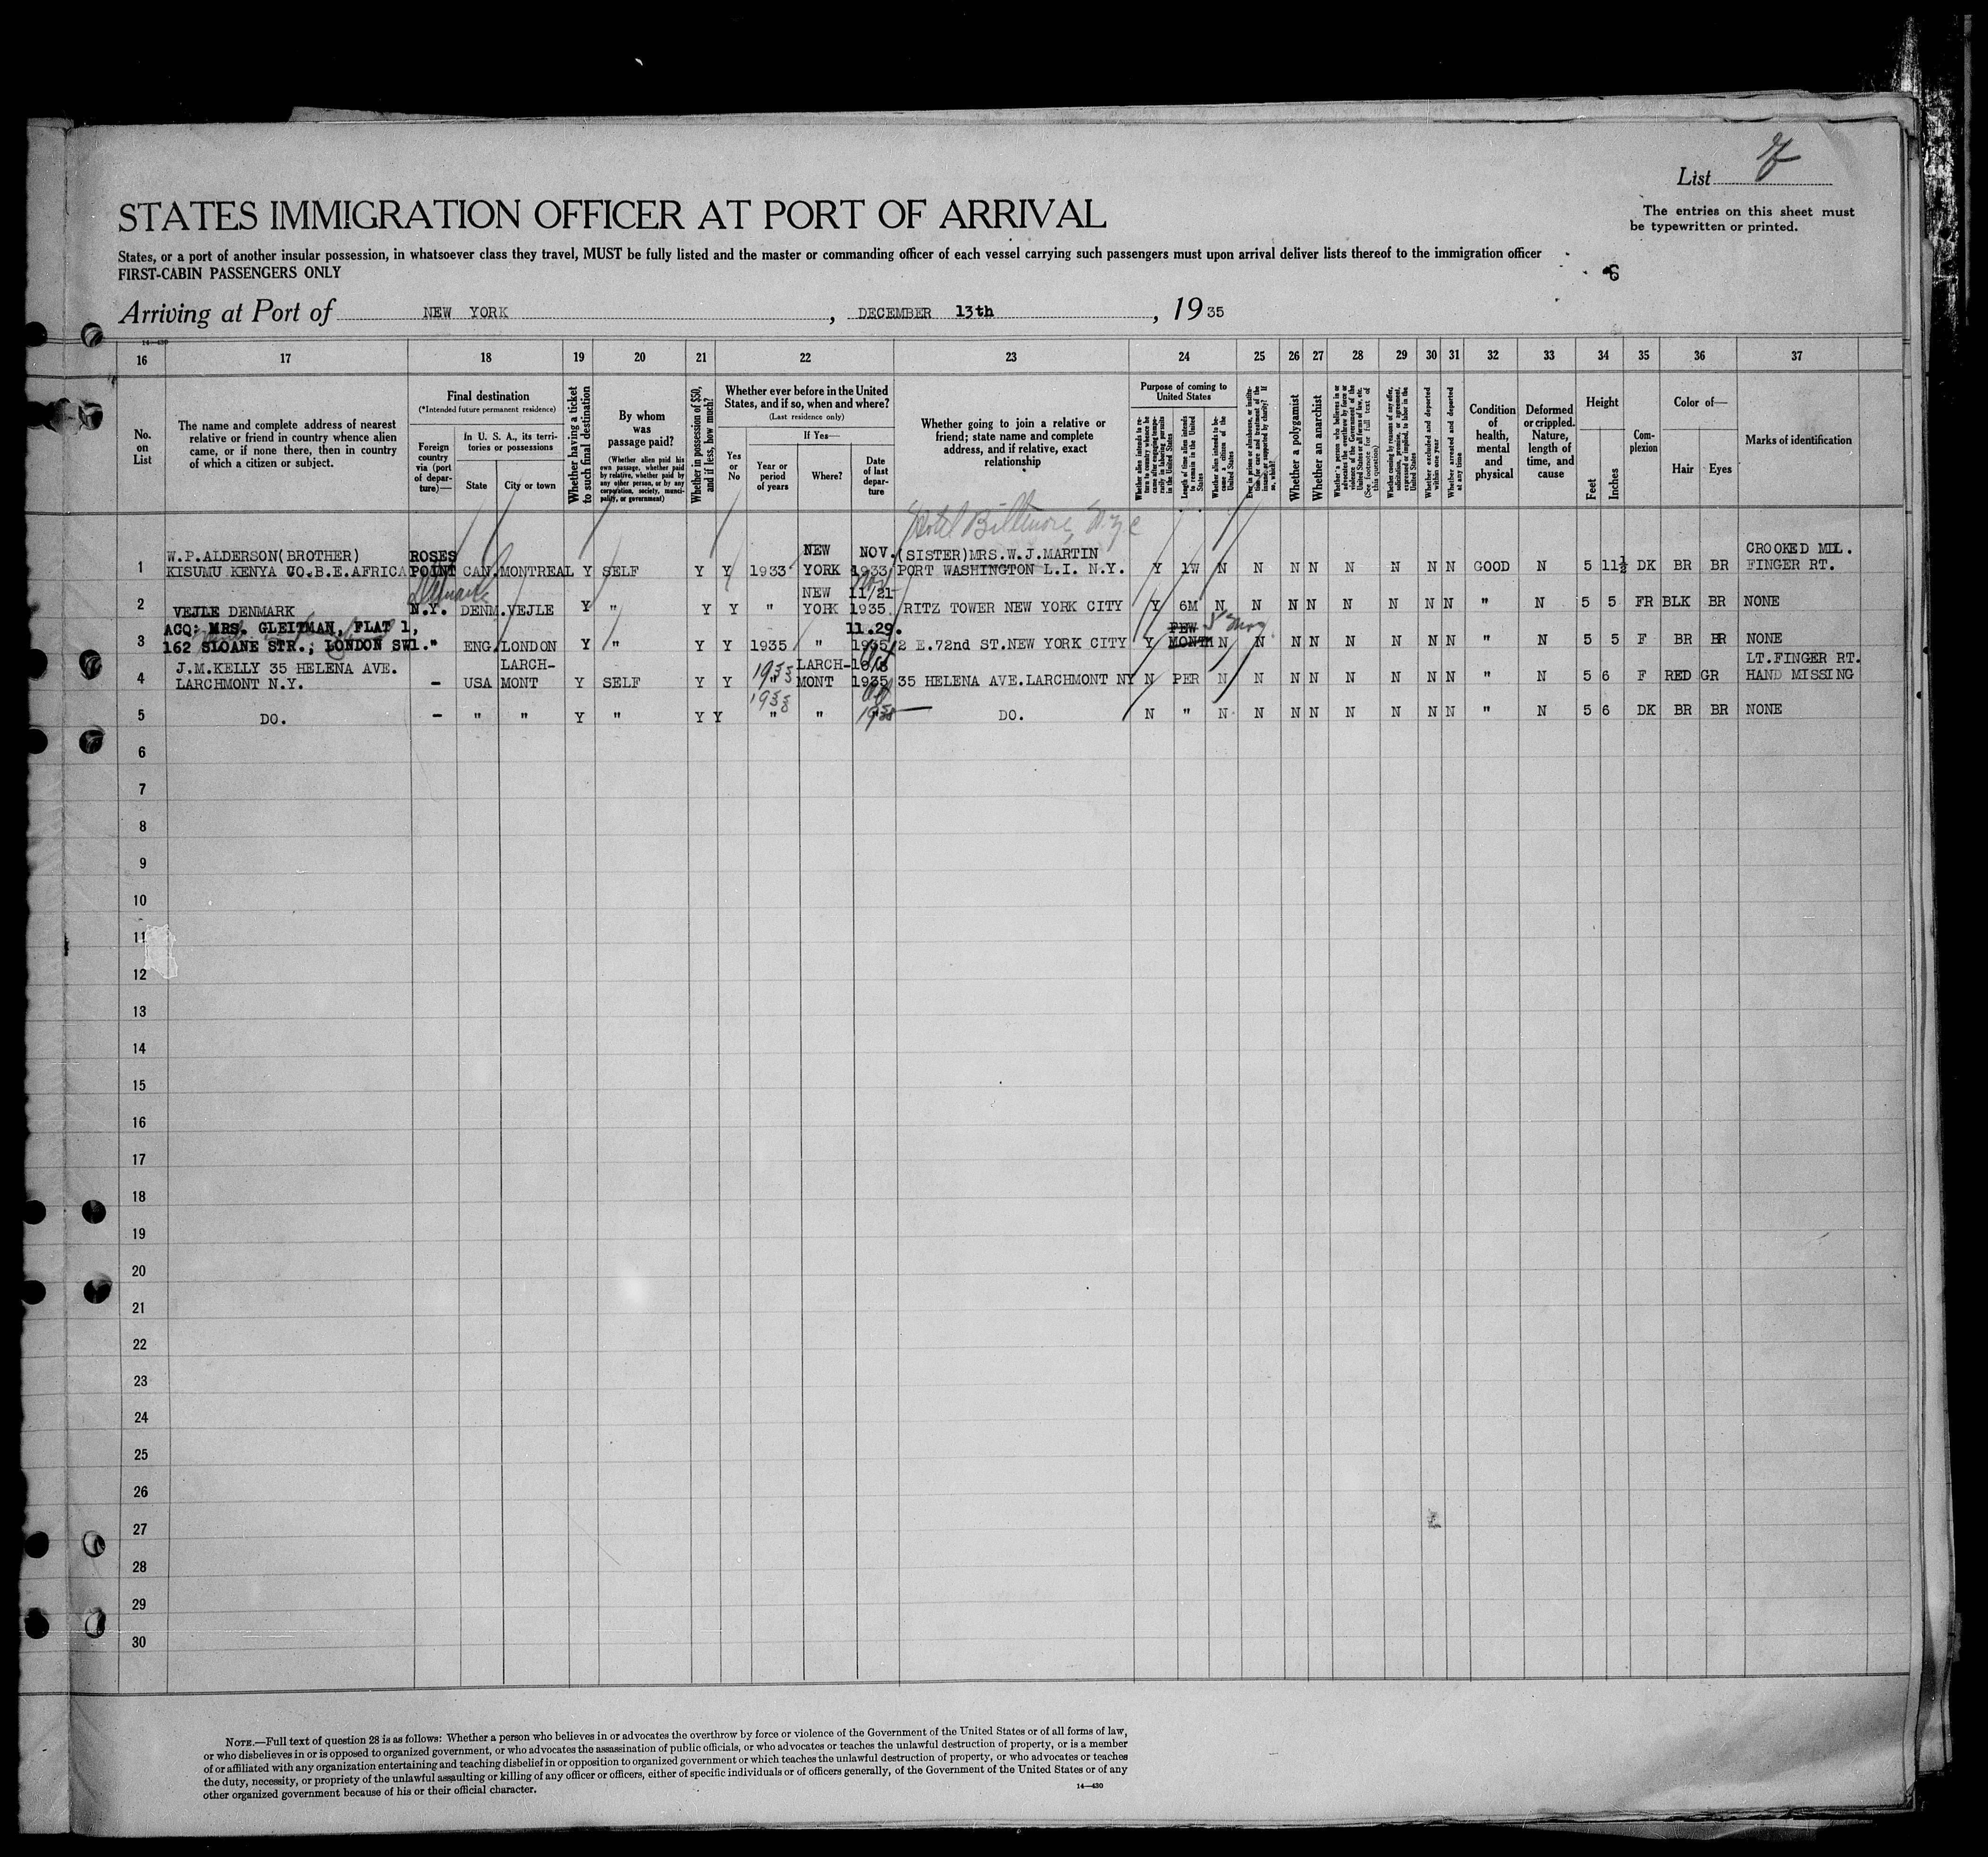 List
The entries on this sheet must
be typewritten or printed.
STATES IMMIGRATION OFFICER AT PORT OF ARRIVAL
States, or a port of another insular possession, in whatsoever class they travel, MUST be fully listed and the master or commanding officer of each vessel carrying such passengers must upon arrival deliver lists thereof to the immigration officer
FIRST-CABIN PASSENGERS ONLY
Arriving at Port of NEW YORK, DECEMBER 13th, 1935
16 17 18 19 20 21 22 23 24 25 26 27 28 29 30 31 32 33 34 35 36 37
No. on List
The name and complete address of nearest relative or friend in country whence alien came, or if none there, then in country of which a citizen or subject.
Final destination
(*Intended future permanent residence)
Foreign country via (port of departure)—
In U. S. A., its territories or possessions
State
City or town
Whether having a ticket to such final destination
By whom was passage paid?
(Whether alien paid his own passage, whether paid by relative, whether paid by any other person, or by any corporation, society, municipality, or government)
Whether in possession of $50, and if less, how much?
Whether ever before in the United States, and if so, when and where?
(Last residence only)
Yes or No
If Yes—
Year or period of years
Where?
Date of last departure
Whether going to join a relative or friend; state name and complete address, and if relative, exact relationship
Purpose of coming to United States
Whether alien intends to return to country whence he came after engaging temporarily in laboring pursuits in the United States
Length of time alien intends to remain in the United States
Whether alien intends to become a citizen of the United States
Ever in prison or almshouse, or institution for care and treatment of the insane, or supported by charity? If so, which?
Whether a polygamist
Whether an anarchist
Whether a person who believes in or advocates the overthrow by force or violence of the Government of the United States or all forms of law, etc. (See footnote for full text of this question)
Whether coming by reason of any offer, solicitation, promise, or agreement, expressed or implied, to labor in the United States
Whether excluded and deported within one year
Whether arrested and deported at any time
Condition of health, mental and physical
Deformed or crippled. Nature, length of time, and cause
Height
Feet
Inches
Complexion
Color of—
Hair
Eyes
Marks of identification
Hotel Biltmore, N.Y.C
1 W.P.ALDERSON(BROTHER) KISUMU KENYA CO.B.E.AFRICA ROSES POINT CAN. MONTREAL Y SELF Y Y 1933 NEW YORK NOV. 1933 (SISTER)MRS.W.J.MARTIN PORT WASHINGTON L.I. N.Y. Y 1W N N N N N N N N GOOD N 5 11½ DK BR BR CROOKED MIL. FINGER RT.
2 VEJLE DENMARK Denmark N.Y. DENM. VEJLE Y " Y Y " NEW YORK 11/21- 1935. RITZ TOWER NEW YORK CITY Y 6M N N N N N N N N " N 5 5 FR BLK BR NONE
3 ACQ: MRS. GLEITMAN, FLAT 1, 162 SLOANE STR., LONDON SW1. " ENG. LONDON Y " Y Y 1935 " 11.29. 1935 2 E.72nd ST.NEW YORK CITY Y FEW MONTH N N N N N N N N " N 5 5 F BR BR NONE
4 J.M.KELLY 35 HELENA AVE. LARCHMONT N.Y. – USA LARCH-MONT Y SELF Y Y 1933 " LARCH-MONT 1935 35 HELENA AVE.LARCHMONT NY N PER N N N N N N N N " N 5 6 F RED GR LT.FINGER RT. HAND MISSING
5 DO. – " " Y " Y Y 1933 " " DO. N " N N N N N N N N " N 5 6 DK BR BR NONE
6
7
8
9
10
11
12
13
14
15
16
17
18
19
20
21
22
23
24
25
26
27
28
29
30
NOTE.—Full text of question 28 is as follows: Whether a person who believes in or advocates the overthrow by force or violence of the Government of the United States or of all forms of law,
or who disbelieves in or is opposed to organized government, or who advocates the assassination of public officials, or who advocates or teaches the unlawful destruction of property, or is a member
of or affiliated with any organization entertaining and teaching disbelief in or opposition to organized government or which teaches the unlawful destruction of property, or who advocates or teaches
the duty, necessity, or propriety of the unlawful assaulting or killing of any officer or officers, either of specific individuals or of officers generally, of the Government of the United States or of any
other organized government because of his or their official character.
14—430